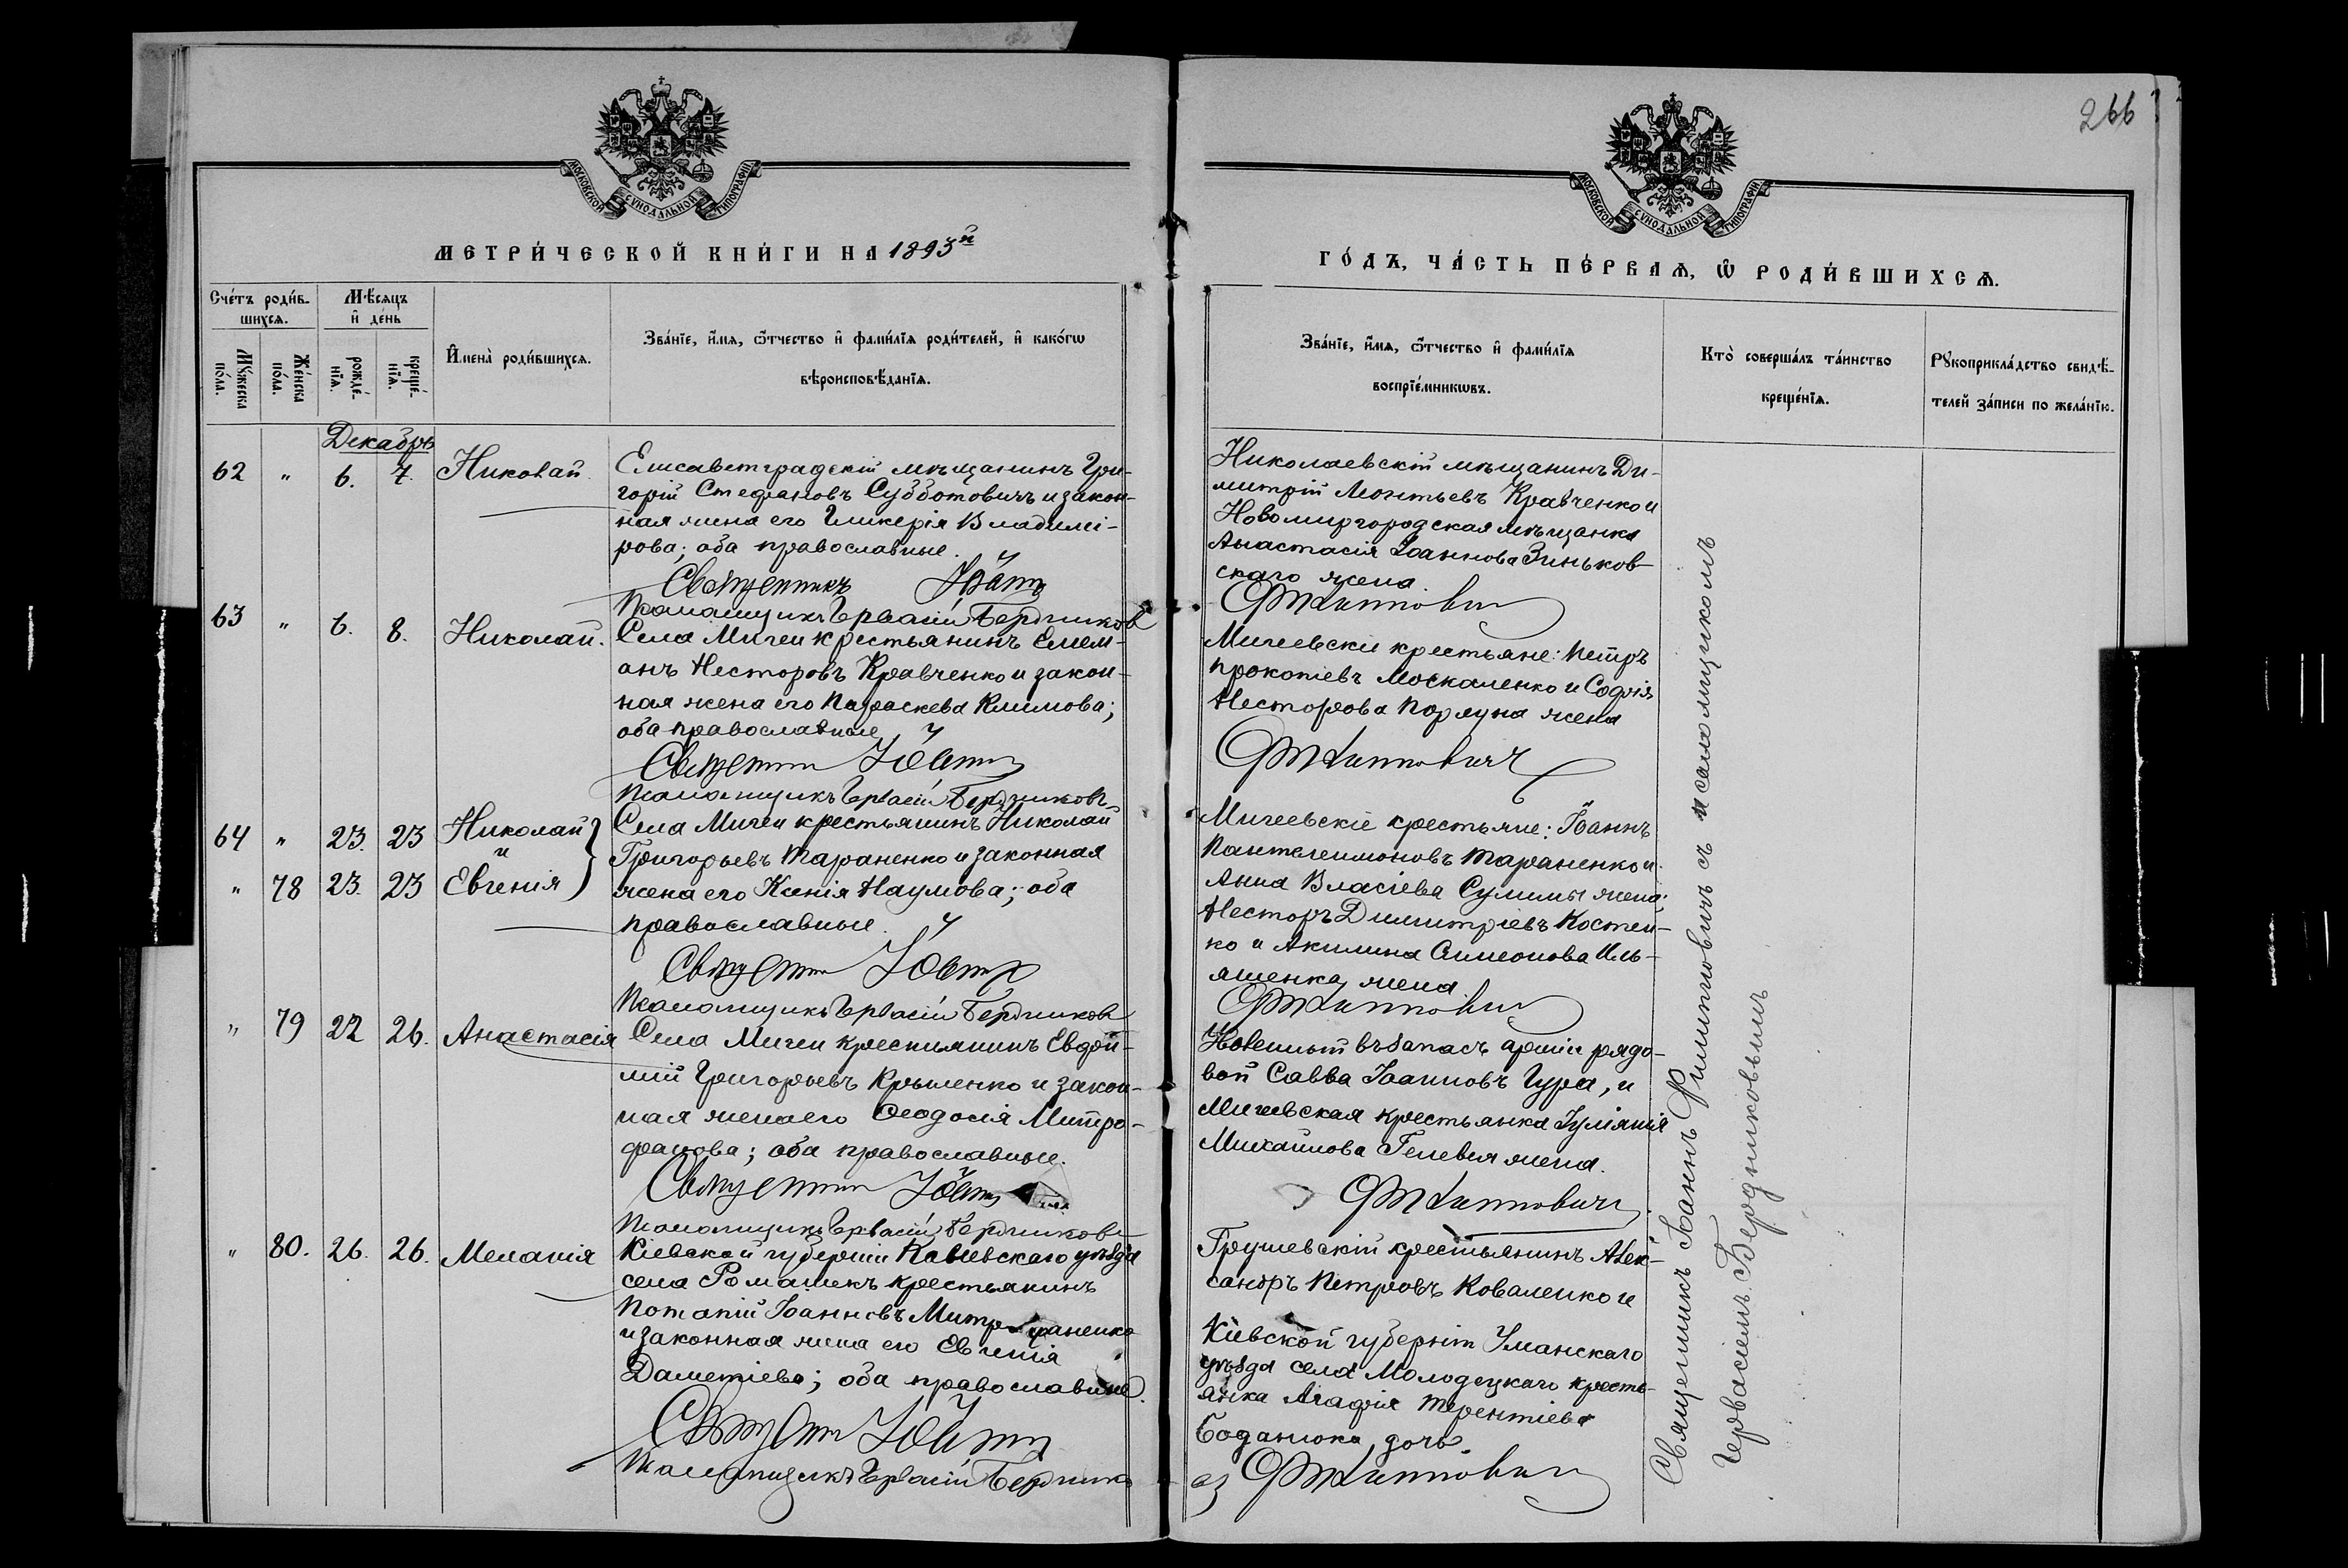 266
МОСКОВСКОЙ СѴНОДАЛЬНОЙ ТИПОГРАФІИ
МОСКОВСКОЙ СѴНОДАЛЬНОЙ ТИПОГРАФІИ
МЕТРИ́ЧЕСКОЙ КНИ́ГИ НА 1893й
ГО́ДЪ, ЧА́СТЬ ПЕ́РВАѦ, Ѡ РОДИ́ВШИХСѦ.
Сче́тъ роди́в-
шихсѧ.
Мѣ́сѧцъ
и҆ де́нь
Мꙋ́жеска
по́ла.
Же́нска
по́ла.
рожде́-
нїѧ.
креще́-
нїѧ.
И҆мена̀ роди́вшихсѧ.
Зва́нїе, и҆́мѧ, ѻ҆́тчество и҆ фами́лїѧ роди́телей, и҆ како́гѡ
вѣроисповѣ́данїѧ.
Зва́нїе, и҆́мѧ, ѻ҆́тчество и҆ фами́лїѧ
воспрїе́мникѡвъ.
Кто̀ соверша́лъ та́инство
креще́нїѧ.
Рꙋкоприкла́дство свидѣ́-
телей за́писи по жела́нїю.
Декабрь
62 " 6. 7. Николай
Елисаветградскій мѣщанинъ Гри-
горій Стефановъ Субботовичъ и закон-
ная жена его Гликерія Владимі-
рова; оба православные.
Священникъ Іоаннъ
Псаломщикъ Гервасій Бердников
Николаевскій мѣщанинъ Ди-
митрій Леонтьевъ Кравченко и
Новомиргородская мѣщанка
Анастасія Іоаннова Зиньков-
скаго жена
Филиппович
63 " 6. 8. Николай.
Села Мигеи крестьянинъ Емели-
анъ Несторовъ Кравченко и закон-
ная жена его Параскева Климова;
оба православные
Священни Іоанн
Псаломщикъ Гервасій Бердниковъ
Мигеевскіе крестьяне: Петръ
Прокопіевъ Москаленко и Софія
Несторова Порлуна жена
Филиппович
64 " 23. 23 Николай
и
" 78 23. 23 Евгенія
Села Мигеи крестьянинъ Николай
Григорьевъ Тараненко и законная
жена его Ксенія Наумова; оба
православные.
Священни Іоаннъ
Псаломщикъ Гервасій Бердников
Мигеевскіе крестьяне: Іоаннъ
Пантелеимоновъ Тараненко и
Анна Власіева Сулимы жена;
Несторъ Димитріевъ Костен-
ко и Акилина Симеонова Иль-
яшенка жена
Филиппович
" 79 22 26. Анастасія
Села Мигеи крестьянинъ Евфи-
мій Григорьевъ Крыленко и закон-
ная жена его Ѳеодосія Митро-
фанова; оба православные.
Священни Іоанн
Псаломщикъ Гервасій Бердников
въ запасъ арміи рядо-
вой Савва Іоанновъ Гура, и
Мигеевская крестьянка Іуліанія
Михайлова жена.
Филиппович
" 80. 26. 26. Меланія
Кіевской губерніи Каневскаго уѣзда
села Ромашекъ крестьянинъ
Потапій Іоанновъ Митрофаненко
и законная жена его Евгенія
Дометіева; оба православные.
Священни Іоанн
Псаломщикъ Гервасій Бердников
Грушевскій крестьянинъ Алек-
сандръ Петровъ Коваленко и
Кіевской губерніи Уманскаго
уѣзда села Молодецкаго кресть-
янка Агафія Терентіева
Боданюка дочь.
Филиппович
Священникъ Іоаннъ Филипповичъ съ псаломщикомъ
Гервасіемъ Бердниковымъ